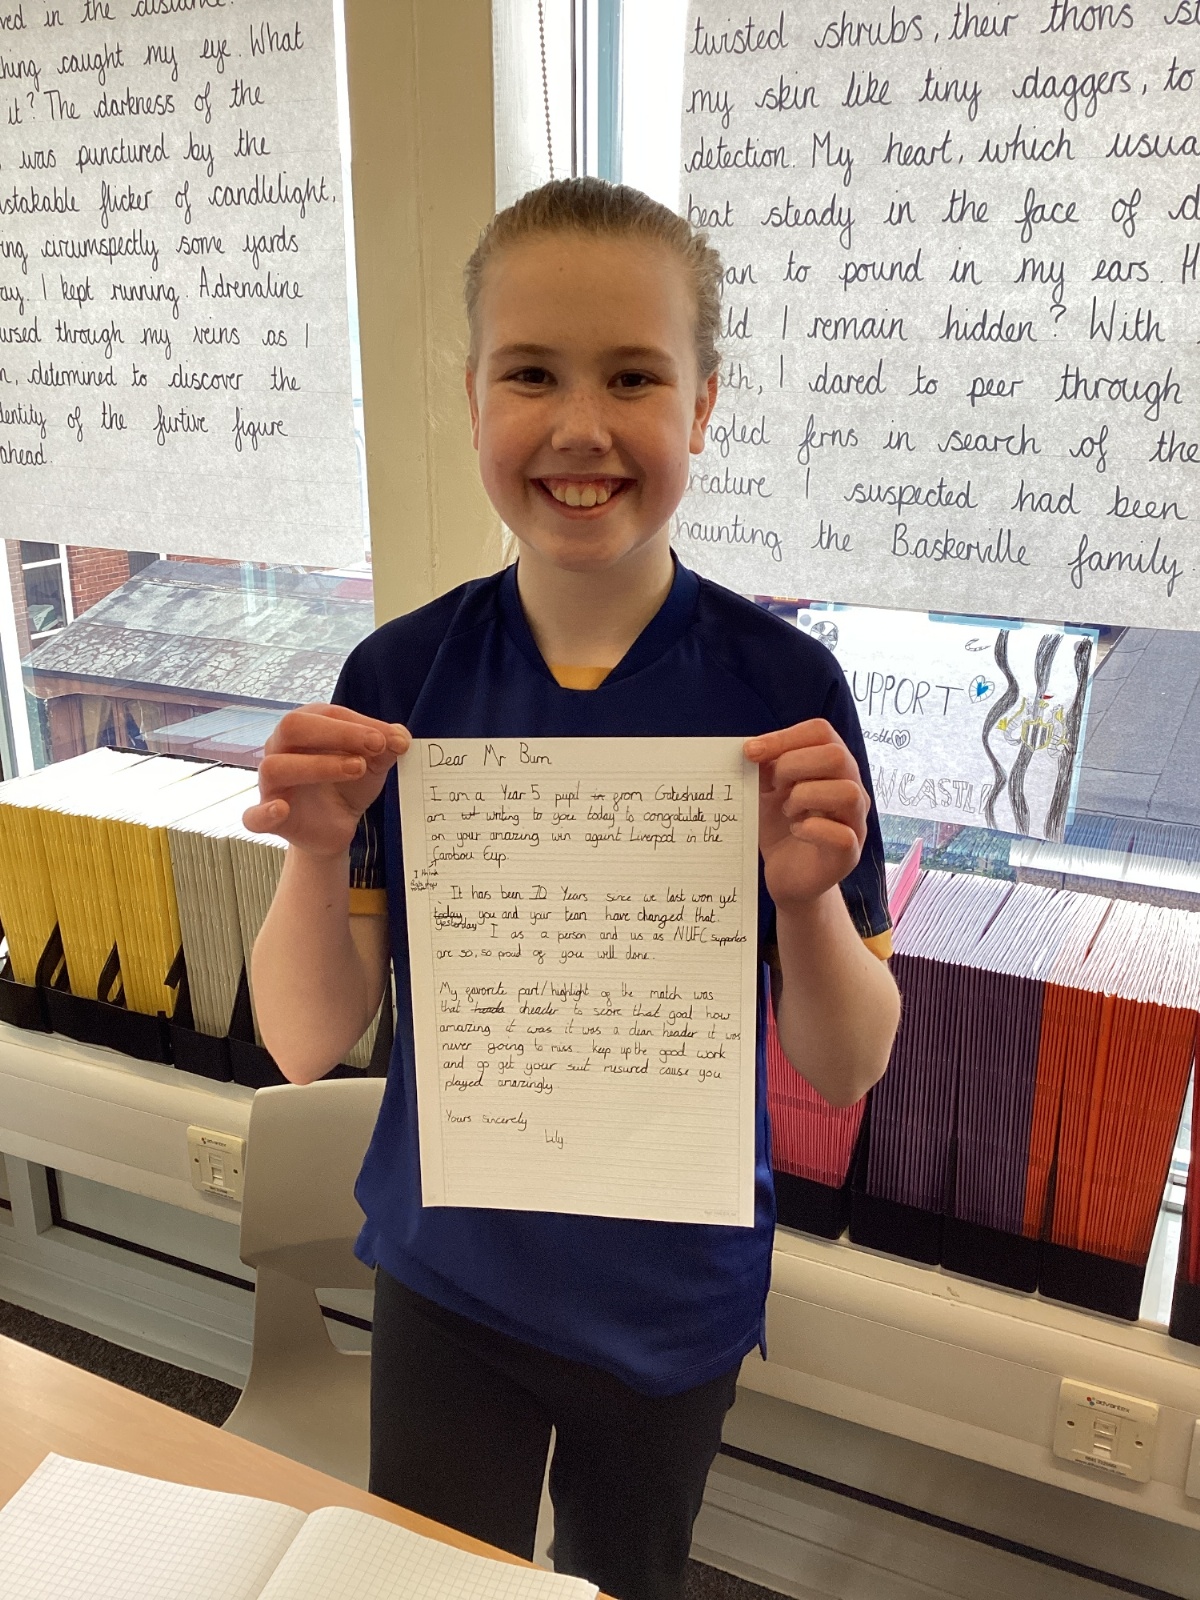 ved in the distance.
hing caught my eye. What
it? The darkness of the
was punctured by the
stakable flicker of candlelight,
ing circumspectly some yards
ay. I kept running. Adrenaline
ursed through my veins as I
n, determined to discover the
dentity of the furtive figure
ahead.
twisted shrubs, their thons st
my skin like tiny daggers, to
detection. My heart, which usua
beat steady in the face of d
gan to pound in my ears. H
ld I remain hidden? With
th, I dared to peer through
ngled ferns in search of the
reature I suspected had been
haunting the Baskerville family.
SUPPORT
castle
NEWCASTLE
Dear Mr Burn
I am a Year 5 pupil from Gateshead I
am writing to you today to congratulate you
on your amazing win againt Liverpool in the
Carobou Cup.
I think
It has been 70 Years since we last won yet
today you and your tean have changed that.
yesterday I as a person and us as NUFC supporters
are so, so proud of you well done.
My favorite part/highlight of the match was
that header to score that goal how
amazing it was it was a clean header it was
never going to miss. keep up the good work
and go get your suit mesured cause you
played amazingly
Yours sincerely
Lily
advantex
advantex